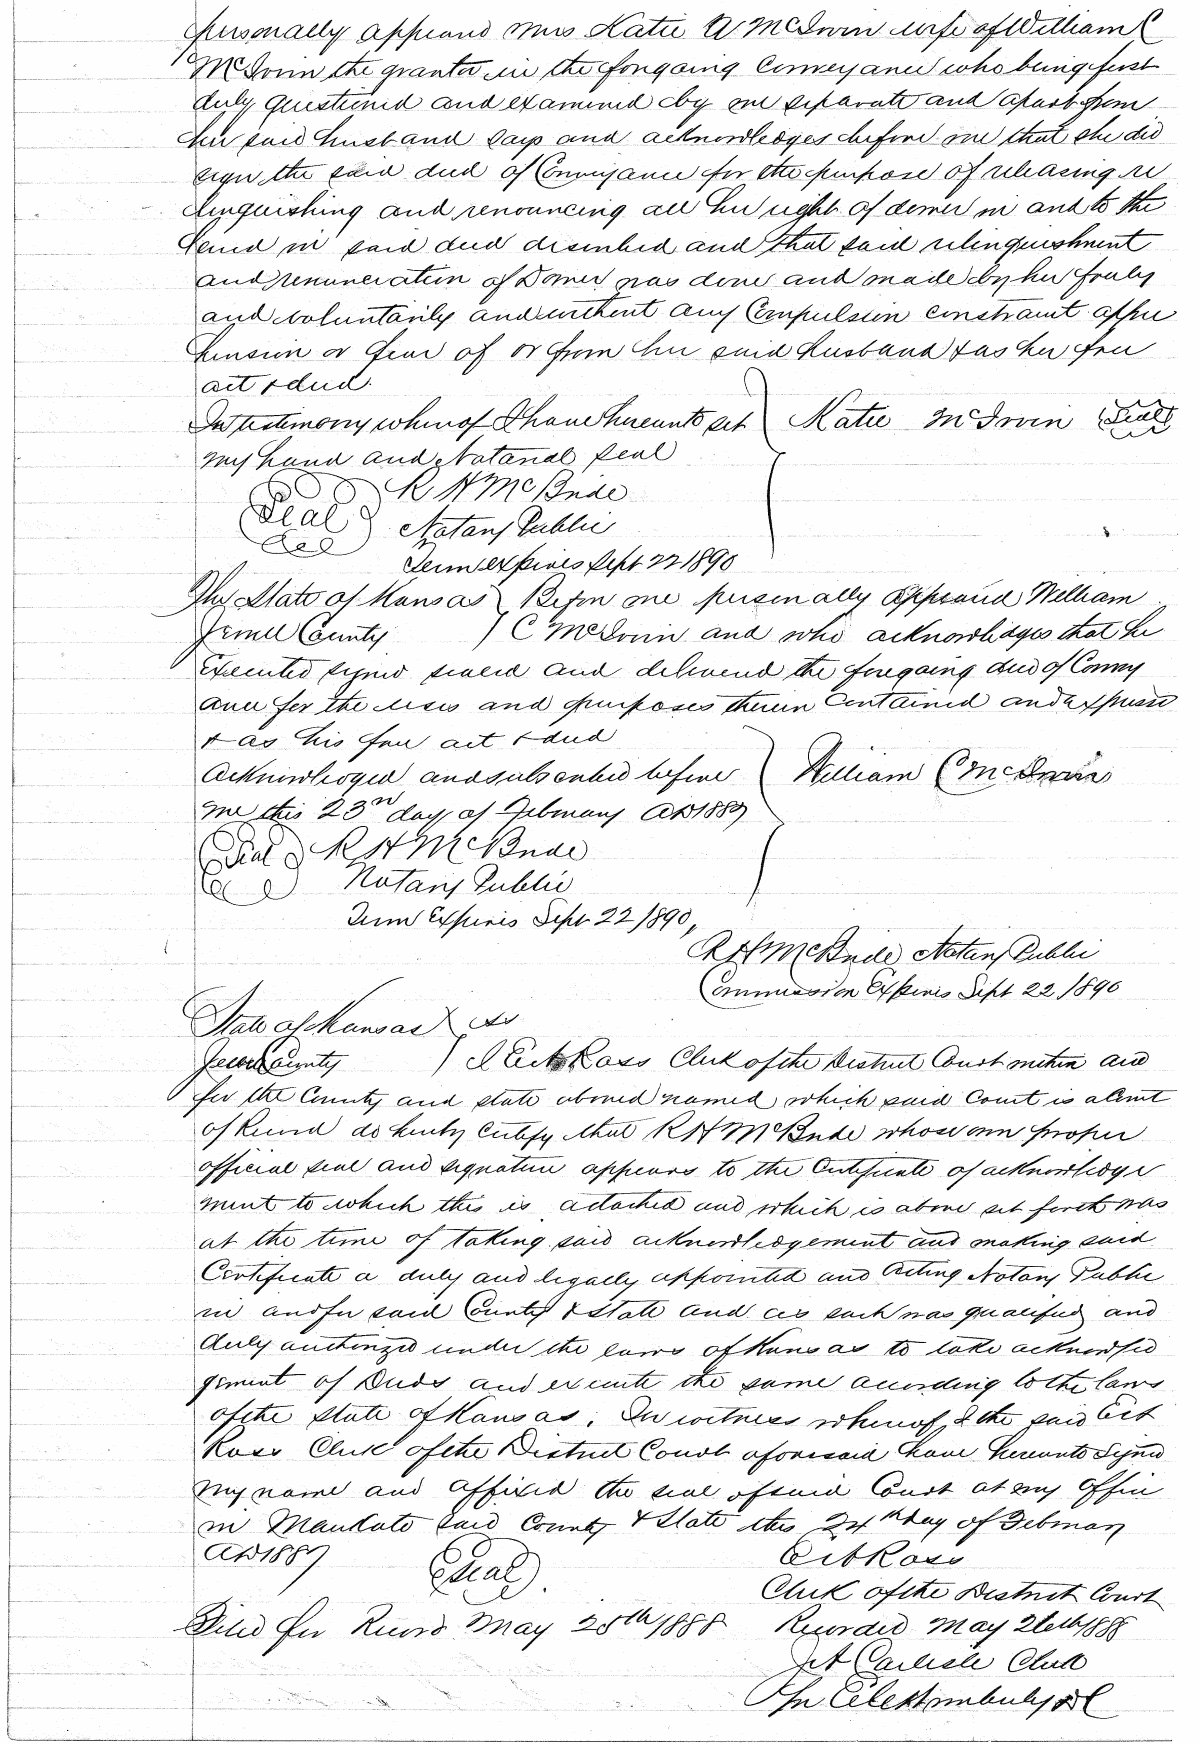 personally appeared Mrs Katie A McIrvin wife of William C
McIrvin the grantor in the foregoing Conveyance who being first
duly questioned and examined by me separate and apart from
her said husband says and acknowledges before me that she did
sign the said deed of Conveyance for the purpose of releasing re
linquishing and renouncing all her right of dower in and to the
land in said deed described and that said relinquishment
and renunciation of Dower was done and made by her freely
and voluntarily and without any Compulsion constraint appre
hension or fear of or from her said Husband & as her free
act & deed.
In testimony whereof I have hereunto set Katie McIrvin (Seal)
my hand and Notarial seal
R H McBride
(Seal) Notary Public
Term expires Sept 22 1890
The State of Kansas } Before me personally appeared William
Jewell County } C McIrvin and who acknowledges that he
Executed signed sealed and delivered the foregoing deed of Convey
ance for the uses and purposes therein contained and expressed
& as his free act & deed
Acknowledged and subscribed before } William C McIrvin
me this 23rd day of February AD 1887
(Seal) R H McBride
Notary Public
Term Expires Sept 22 1890,
R H McBride Notary Public
Commission Expires Sept 22 1890
State of Kansas } ss
Jewell County } I Ross Clerk of the District Court within and
for the County and state above named which said Court is a Court
of Record do hereby Certify that R H McBride whose own proper
official seal and signature appears to the Certificate of acknowledge
ment to which this is attached and which is above set forth was
at the time of taking said acknowledgement and making said
Certificate a duly and legally appointed and acting Notary Public
in and for said County & State and as such was qualified and
duly authorized under the laws of Kansas to take acknowled
gement of Deeds and execute the same according to the laws
of the State of Kansas. In witness whereof I the said
Ross Clerk of the District Court aforesaid have hereunto signed
my name and affixed the seal of said Court at my Office
in Mankato said County & State this 24th day of February
AD 1887 (Seal) Ross
Clerk of the District Court
Filed for Record May 25th 1888 Recorded May 26th 1888
Carlisle Clerk
D C